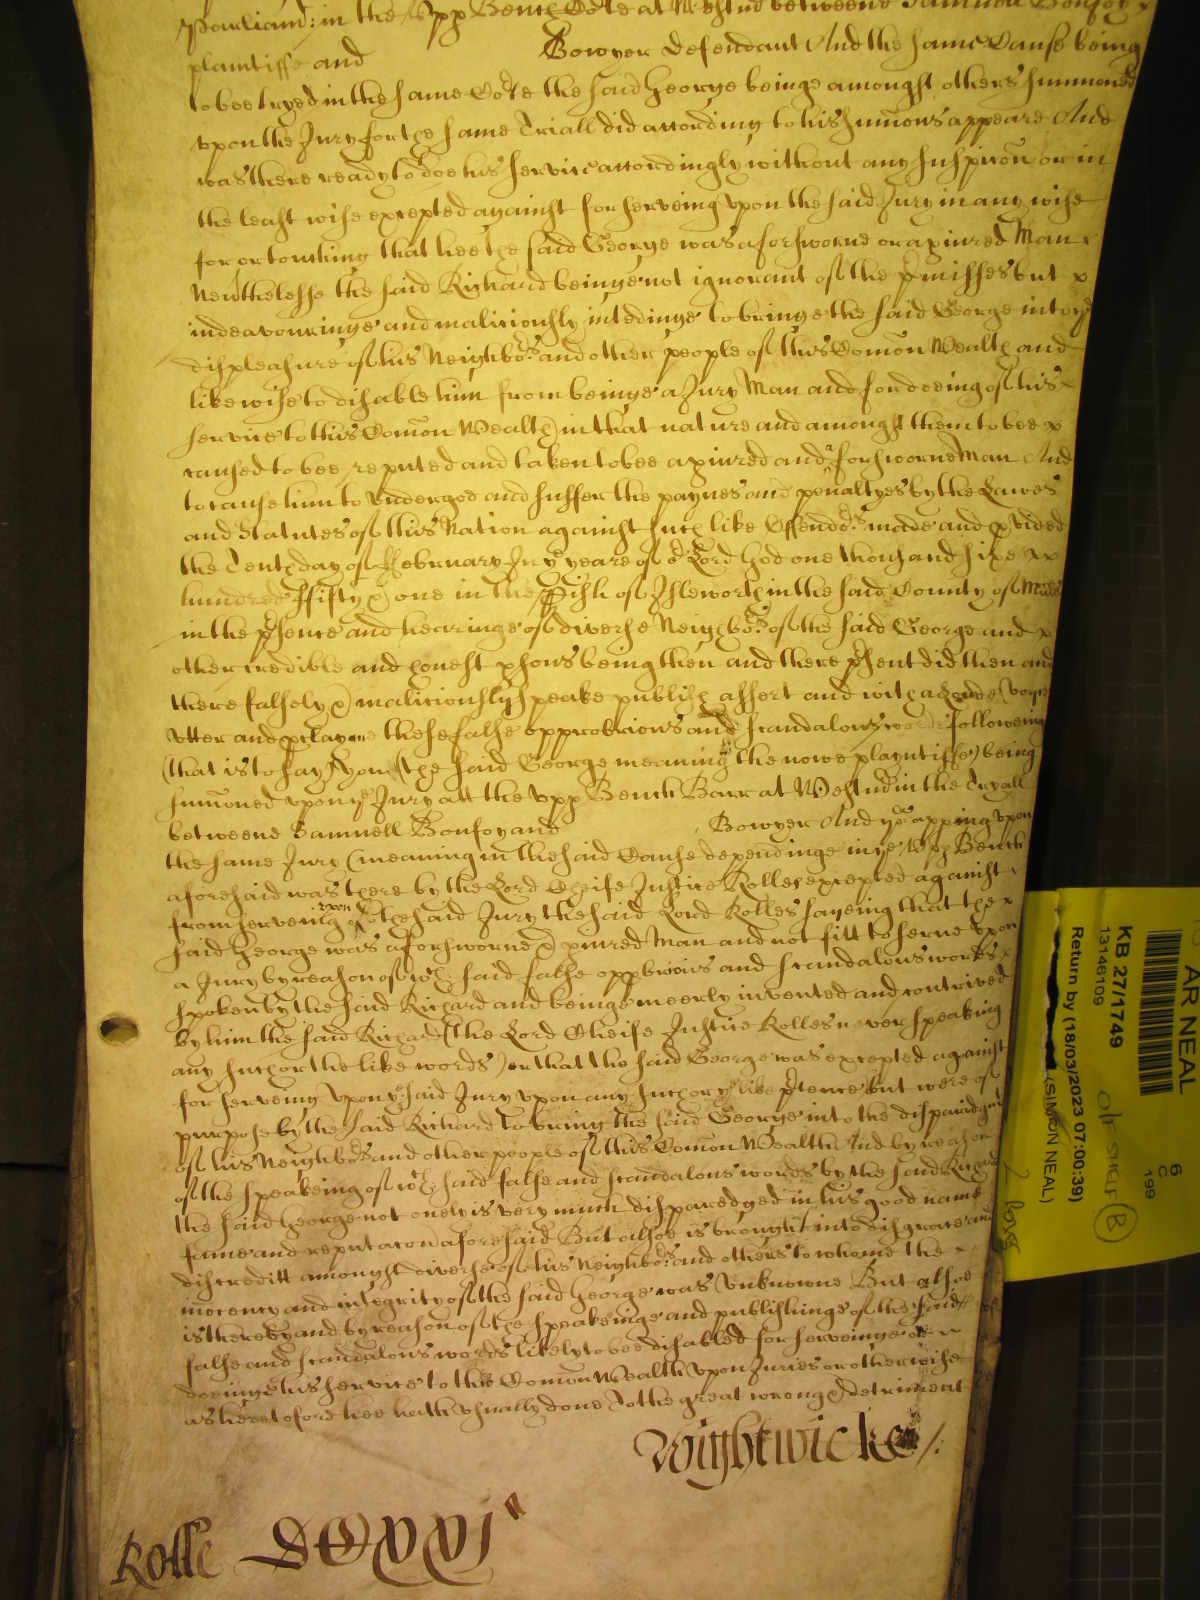 Parliamt: in the Upp Bench Co'te at Westm'd betweene Samuell Bonfoy x
plaintiffe and Bowyer defendant And the same Cause being
to bee tryed in the same Co'te the said George beinge amongst others summoned
upon the Jury for the same Triall did according to his sum'ons appeare And
was there ready to doe his service accordingly without any suspic'on or in
the least wise excepted against for serveing upon the said Jury in any wise
for or touching that hee the said George was a forsworne or a p'iured Man x
Neu'thelesse the said Richard beinge not ignorant of the p'misses but x
indeavouringe and maliciously intedinge to bringe the said George into ye
displeasure of his Neighbors and other people of this Com'on Wealth and
likewise to disable him from beinge a Jury Man and for doeing of his x
service to this Com'on Wealth in that nature and amongst them to bee x
caused to bee reputed and taken to bee a p'iured and a forsworne Man And
to cause him to undergoe and suffer the paynes and penaltyes by the Lawes
and Statutes of this Nation against such like Offendors made and p'vided
the Tenth day of February In ye yeare of or Lord God one thousand sixe xx
hundred Fifty & one in the P'ish of Isleworth in the said County of Midds
in the p'sence and hearinge of diverse Neighbors of the said George and x
other credible and honest p'sons being then and there p'sent did then and
there falsely & maliciously speake publish assert and with a Lowde voyce
utter and p'clayme these false opprobrious and scandalous words following
(that is to say) you (the said George meaning the nowe playntiffe) being
sum'oned upon ye Jury att the Upp Bench Barr at Westm'd in the Tryall
betweene Samuell Bonfoy and Bowyer And yor apping upon
the same Jury (meaning in the said Cause depending in ye Upp Bench
aforesaid was there by the Lord Cheife Justice Rolles excepted against x
from serveing upon the said Jury the said Lord Rolles sayeing that the x
said George was a forsworne & p'iured Man and not fitt to serve upon
a Jury by reason of wch said false oppbrious and scandalous words x
spoken by the said Richard and beinge meerly invented and contrived
by him the said Richard (the Lord Cheife Justice Rolles never speaking
any such or the like words) or that the said George was excepted against
for serveing upon ye said Jury upon any such or ye like p'tence but were of
purpose by the said Richard to bring the said George into the disparidgmt
of his Neighbors and other people of this Com'on Wealth And by reason
of the speakeing of wch said false and scandalous words by the said Richard
the said George not onely is very much disparedged in his good name
fame and reputac'on aforesaid But alsoe is brought into disgrace and
discreditt amongst diverse of his Neighbors and others to whome the ~
inocency and integrity of the said George was unknowne But alsoe
is thereby and by reason of the speakeinge and publishinge of the said
false and scandalous words likely to bee disabled for serveinge or ~
doeinge his service to this Com'on Wealth upon Juries or otherwise
as heretofore hee hath usually done To the great wrong & detriment
Wightwicke /:
Rolle DCXXI
AR NEAL
KB 27/1749
13146109
Return by (18/03/2023 07:00:39)
(SIMON NEAL)
6
C
199
Off Shelf
B
2 boxes